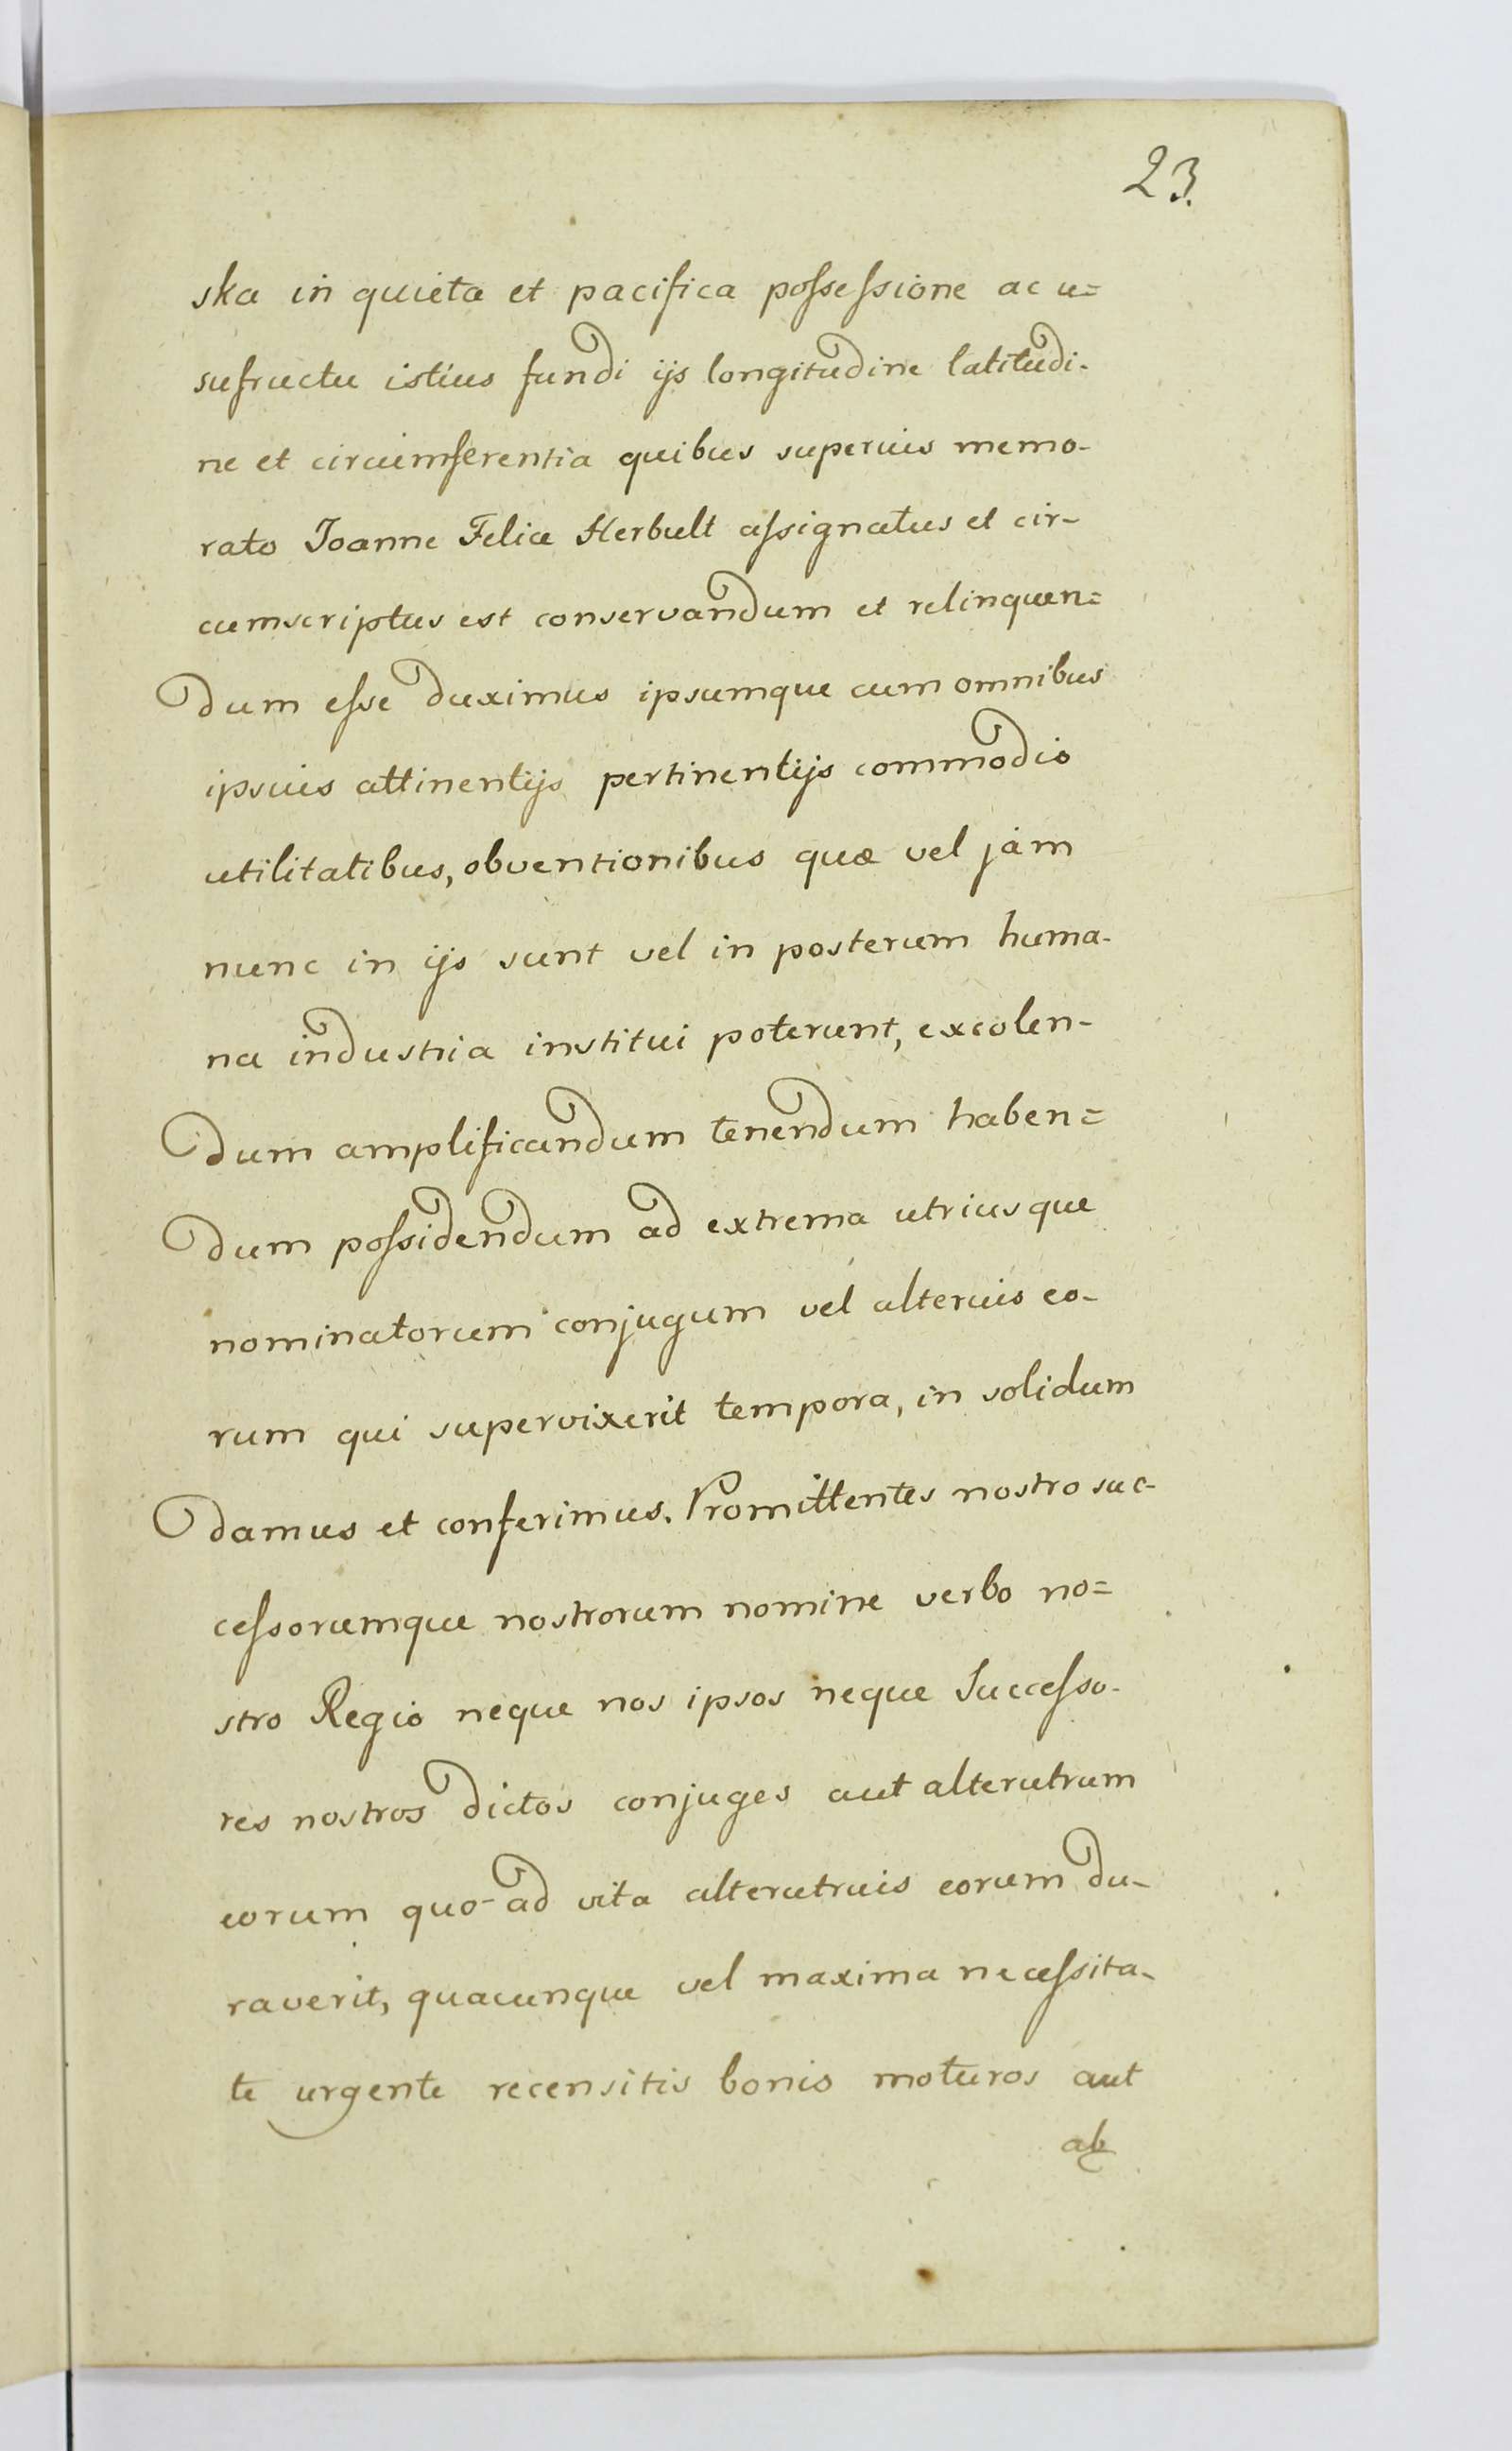 23.
ska in quieta et pacifica possessione ac u=
sufructu istius fundi ijs longitudine latitudi-
ne et circumferentia quibus superius memo-
rato Joanne Felice Herbult assignatus et cir-
cumscriptus est conservandum et relinquen=
dum esse duximus ipsumque cum omnibus
ipsius attinentijs pertinentijs commodis
utilitatibus, obventionibus quæ vel jam
nunc in ijs sunt vel in posterum huma-
na industria institui poterunt, excolen-
dum amplificandum tenendum haben=
dum possidendum ad extrema utriusque
nominatorum conjugum vel alterius eo-
rum qui supervixerit tempora, in solidum
damus et conferimus. Promittentes nostro suc-
cessorumque nostrorum nomine verbo no=
stro Regio neque nos ipsos neque Successo-
res nostros dictos conjuges aut alterutrum
eorum quo-ad vita alterutrius eorum du-
raverit, quacunque vel maxima necessita-
te urgente recensitis bonis moturos aut
ab